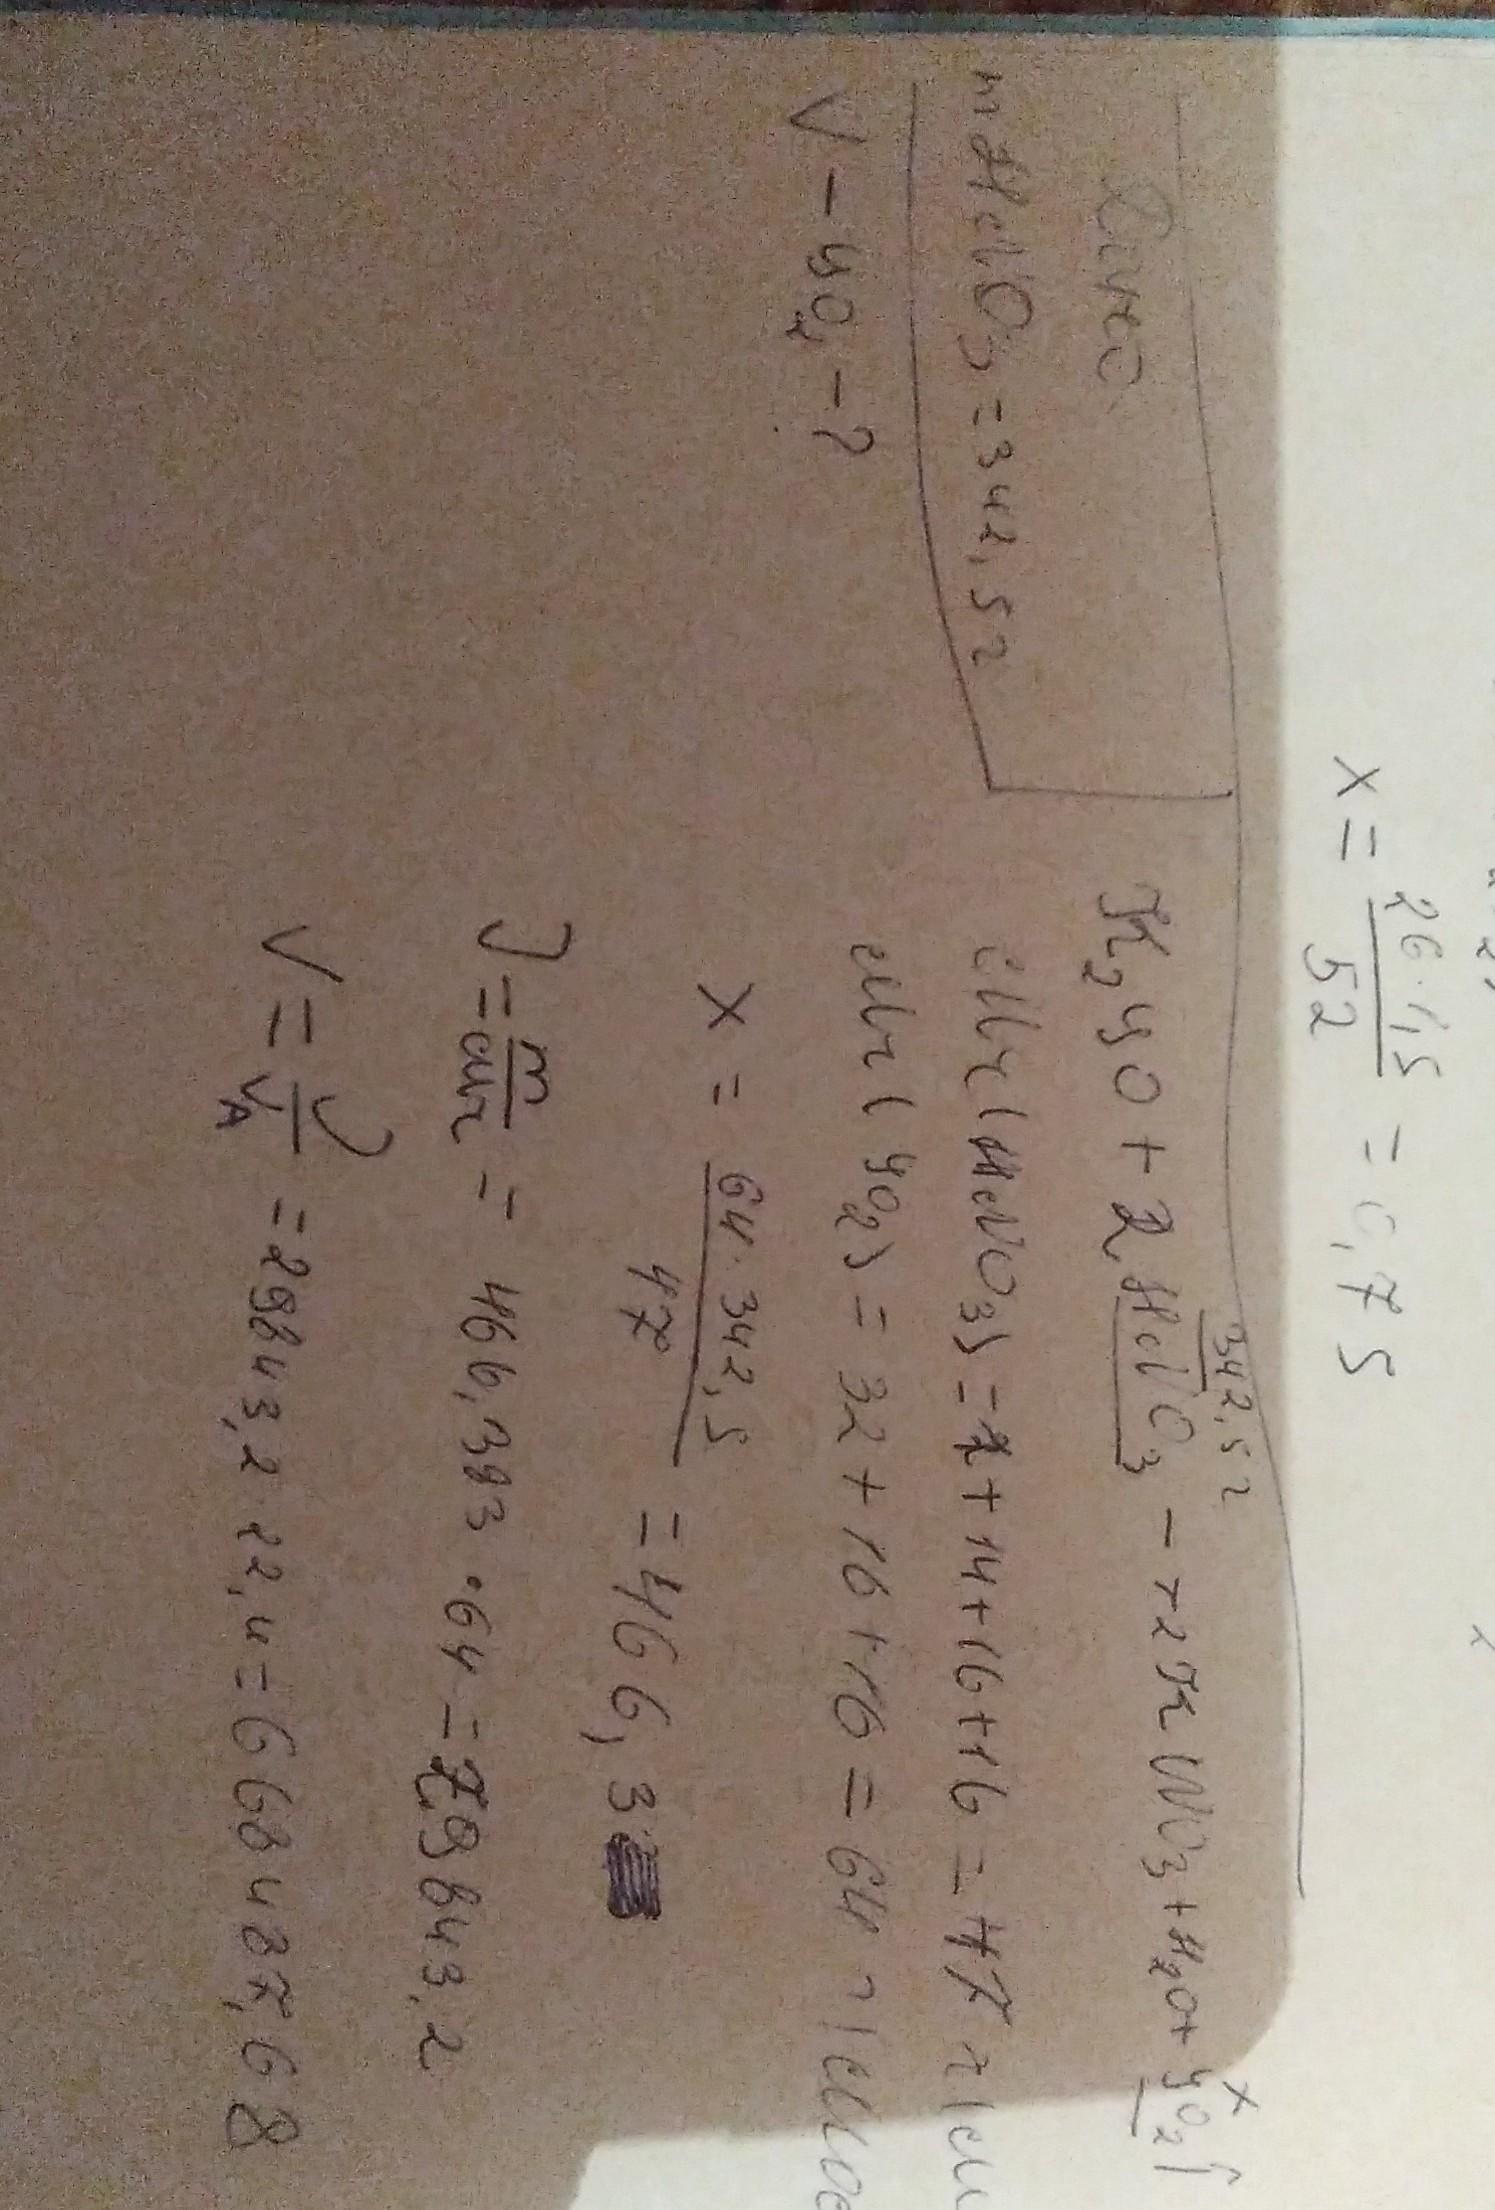 x = 26·1,5 / 52 = 0,75
Дано
m HNO3 = 342,5 г
V - SO2 - ?
342,5 г
x
K2SO + 2HNO3 → 2KNO3 + H2O + SO2↑
Mr (HNO3) = 1 + 14 + 16 + 16 = 47 г/м
Mr (SO2) = 32 + 16 + 16 = 64 г/мо
x = 64·342,5 / 47 = 466,3
J = m / Mr = 466,393·64 = 29843,2
V = J / VA = 29843,2·22,4 = 668487,68